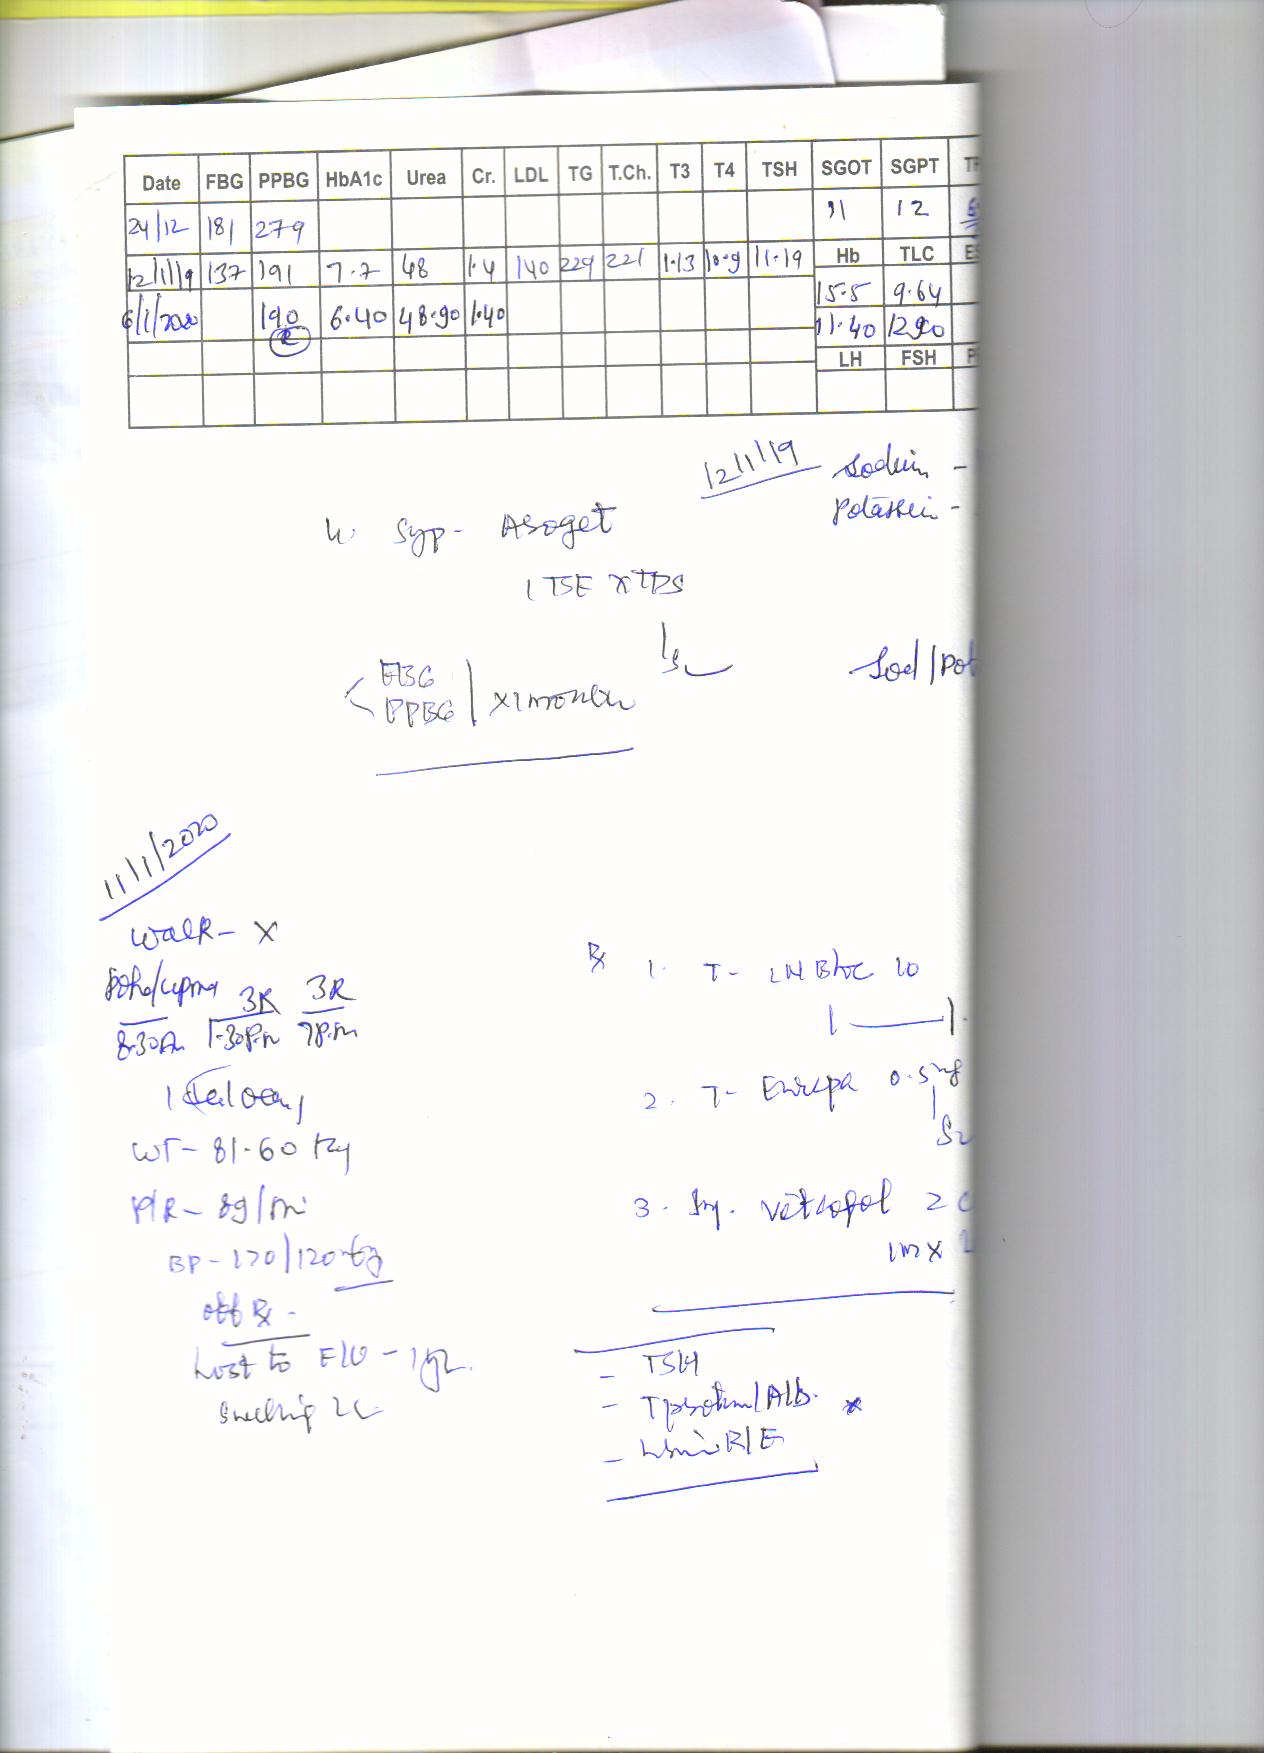 Date FBG PPBG HbA1c Urea Cr. LDL TG T.Ch. T3 T4 TSH SGOT SGPT
24/12 181 279 11 12
12/1/19 137 191 7.7 48 1.4 140 229 221 1.13 10.9 11.19 Hb TLC
15.5 9.64
6/1/2020 190 6.40 48.90 1.40 11.40 1290
R
LH FSH
12/1/19 Sodium -
Potassium -
4. Syp- Asoget
1 TSF X TDS
FBG
PPBG X 1 month
Sod/Pot
11/1/2020
Walk - X
Poha/upma 3R 3R
8.30A 1.30P.m 7P.m
WT - 81.60 Kg
P/R - 89/mi
BP - 170/120
off Rx -
Lost to F/U - 1 yr
Swelling
Rx 1. T- LN Bloc 10
1 — 1
2. T- 0.5mg
3. Inj. Vitcofol 2 c
im x
- TSH
- T protein/Alb. *
- Urine R/E